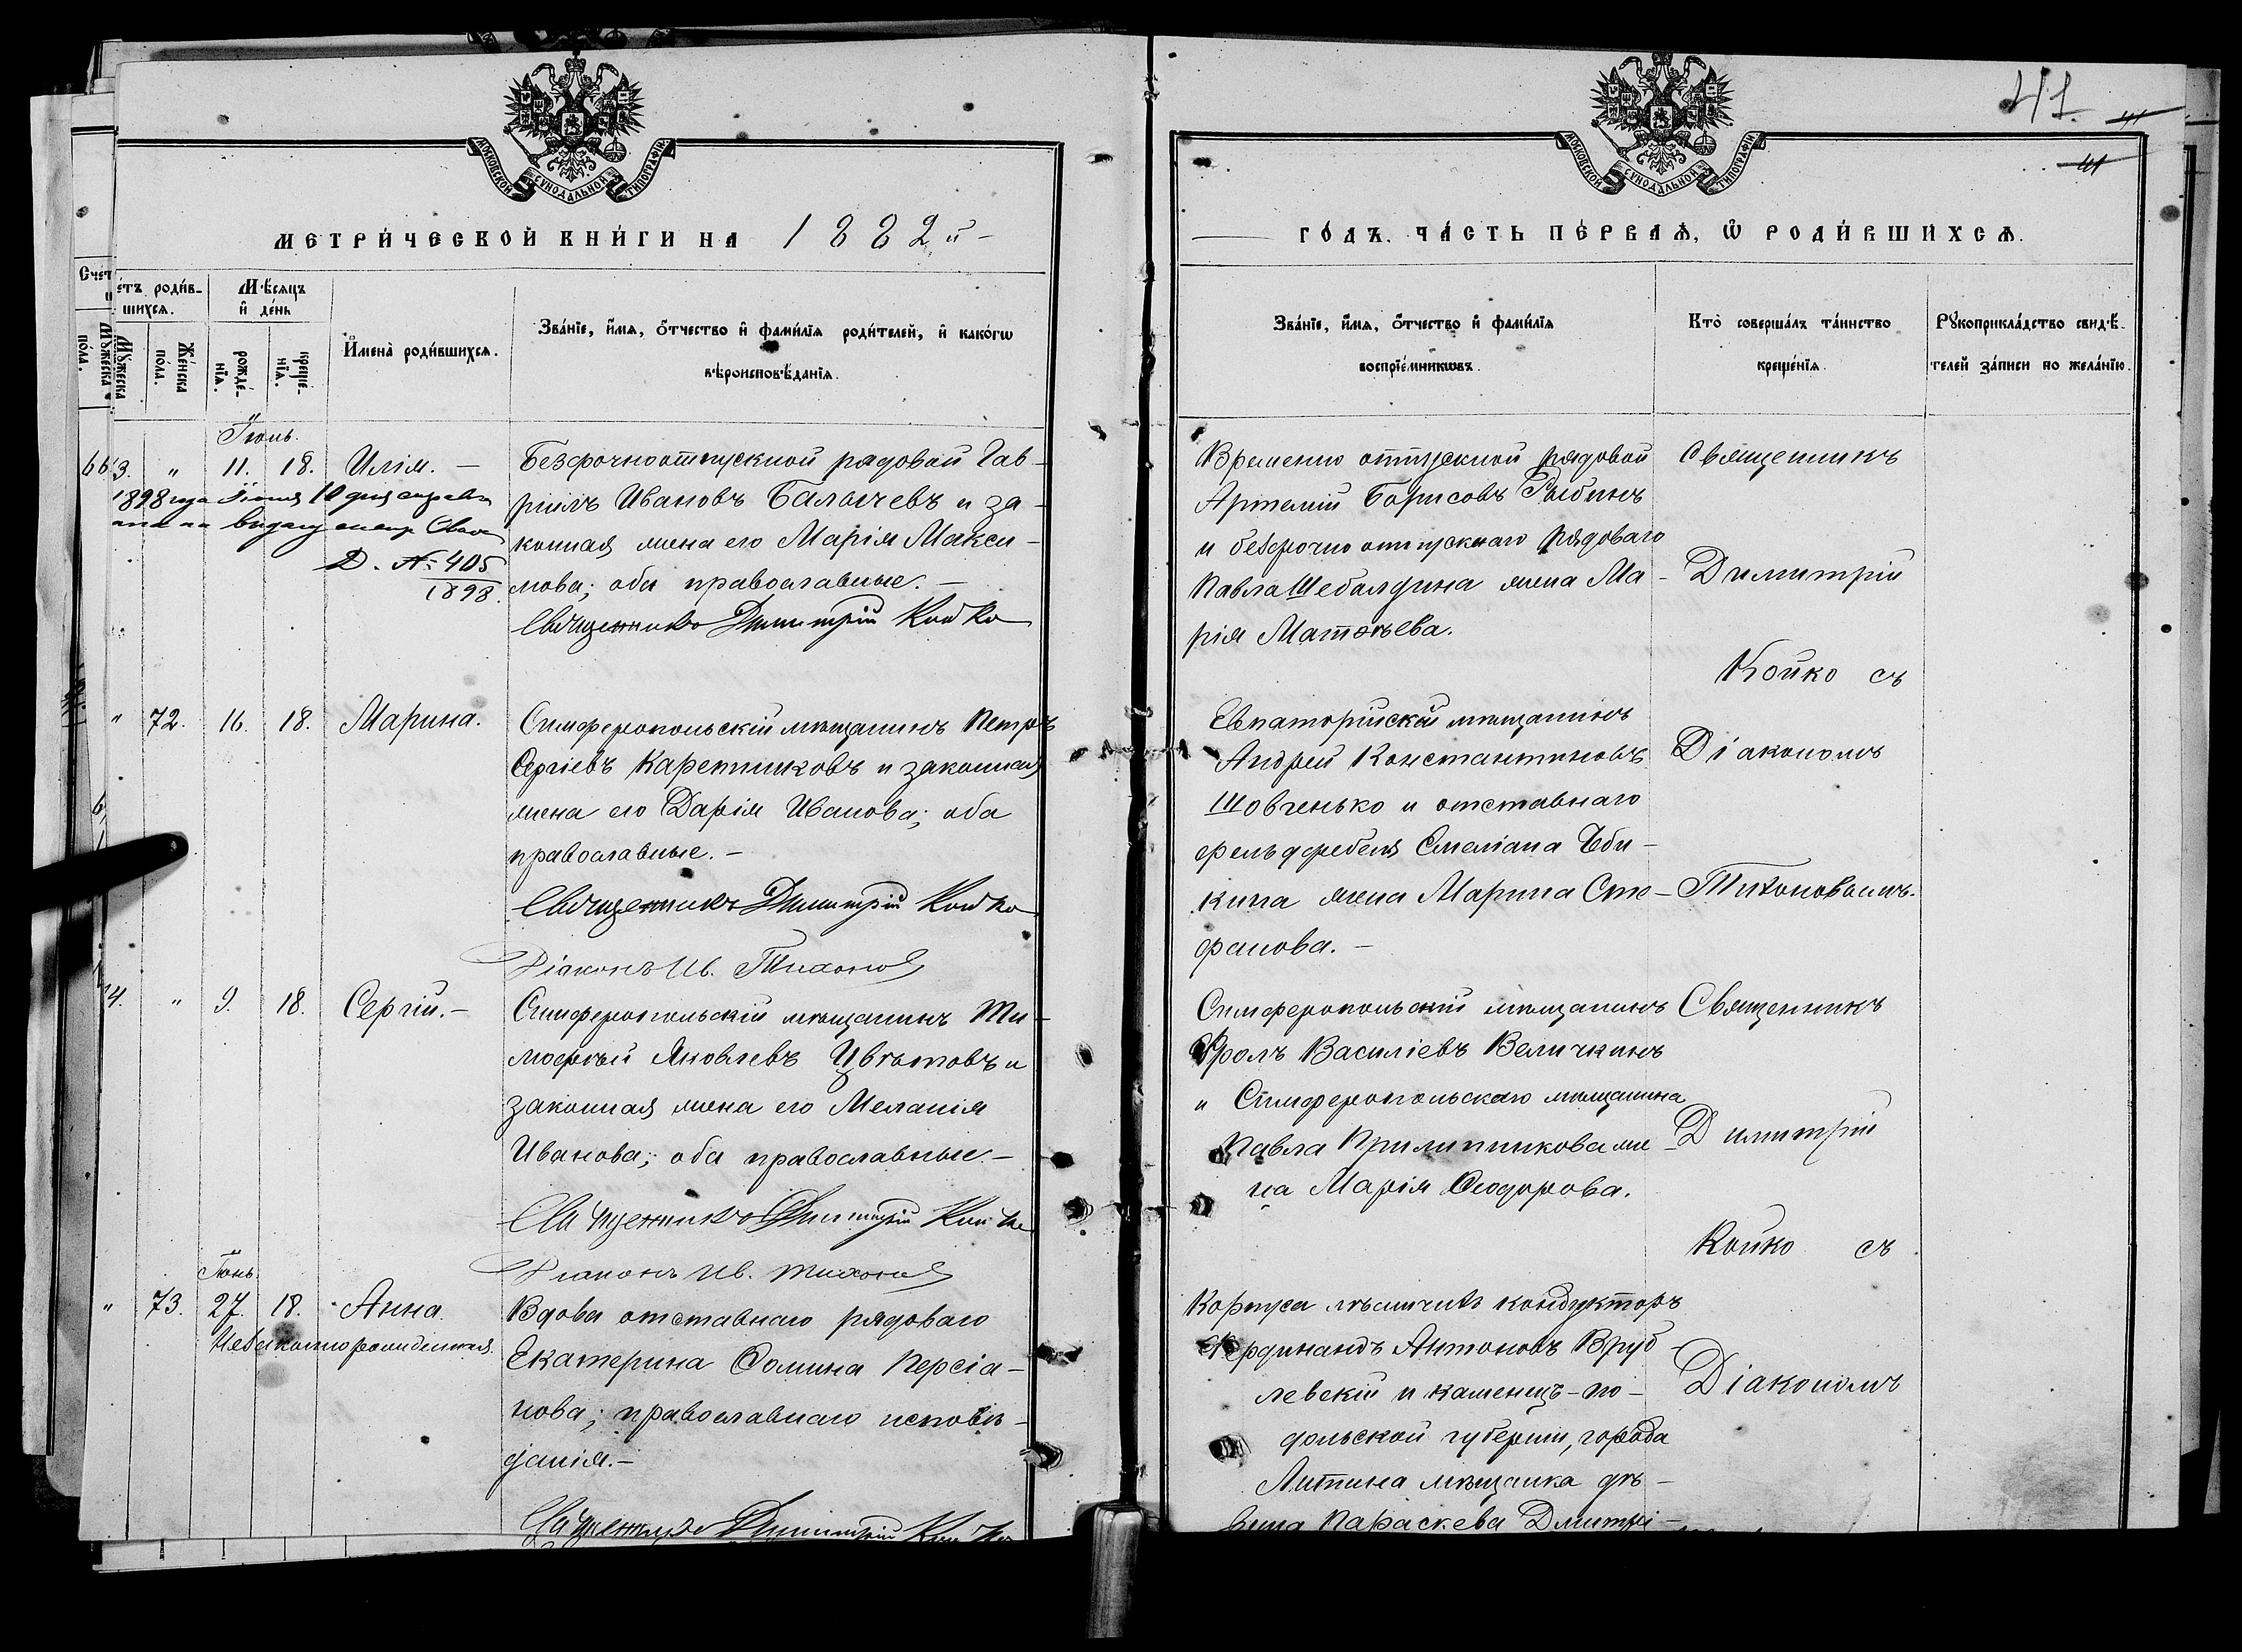 41.
41
41
МОСКОВСКОЙ СѴНОДАЛЬНОЙ ТИПОГРАФІИ
МОСКОВСКОЙ СѴНОДАЛЬНОЙ ТИПОГРАФІИ
МЕТРИ́ЧЕСКОЙ КНИ́ГИ НА 1882 й
Счетъ роди́вшихся.
Мꙋ́жеска по́ла.
Же́нска по́ла.
Мѣ́сяцъ и҆ де́нь
рожде́нїя.
креще́нїя.
И҆мена̀ роди́вшихся.
Зва́нїе, и҆́мя, ѻ҆́тчество и҆ фами́лїя роди́телей, и҆ како́гѡ
вѣроисповѣ́данїя.
Іюль.
3. " 11. 18. Илія. — Безсрочноотпускной рядовой Гав-
ріилъ Ивановъ Балычевъ и за-
конная жена его Марія Макси-
мова; оба православные. —
Священникъ Димитрій Койко
1898 года 10 дня
Д. № 405
1898.
" 72. 16. 18. Марина. Симферопольскій мѣщанинъ Петръ
Сергіевъ Каретниковъ и законная
жена его Дарія Иванова; оба
православные. —
Священникъ Димитрій Койко
Діаконъ Ив. Тихоновъ
4. " 9. 18. Сергій. — Симферопольскій мѣщанинъ Ти-
мофѣй Яковлевъ Цвѣтовъ и
законная жена его Меланія
Иванова; оба православные —
Священникъ Димитрій Койко
Діаконъ Ив. Тихоновъ
Іюнь.
" 73. 27. 18. Анна. Вдова отставнаго рядоваго
Незаконнорожденная. Екатерина Ѳомина Персіа-
нова; православнаго исповѣ-
данія. —
Священникъ Димитрій Койко
ГО́ДЪ. ЧА́СТЬ ПЕ́РВАѦ, Ѡ҆ РОДИ́ВШИХСѦ.
Зва́нїе, и҆́мя, ѻ҆́тчество и҆ фами́лїя
воспрїе́мникѡвъ.
Кто̀ соверша́лъ та́инство
креще́нїя.
Рꙋкоприкла́дство свидѣ́-
телей за́писи по жела́нїю.
Временно отпускной рядовой
Артемій Борисовъ Рыбинъ
и безсрочно отпускнаго рядоваго
Павла Шебалдина жена Ма-
рія Матѳѣева.
Священникъ
Димитрій
Койко съ
Евпаторійскій мѣщанинъ
Андрей Константиновъ
Шовченько и отставнаго
фельдфебеля Емеліана
кина жена Марина Сте-
фанова. —
Діакономъ
Тихоновымъ.
Симферопольскій мѣщанинъ
Фролъ Василіевъ Величкинъ
и Симферопольскаго мѣщанина
Павла же-
на Марія Ѳеодорова.
Священникъ
Димитрій
Койко съ
Корпуса лѣсничихъ кондукторъ
Фердинандъ Антоновъ Вруб-
левскій и каменецъ-по-
дольской губерніи, города
Литина мѣщанка дѣ-
вица Параскева Дмитрі-
Діакономъ